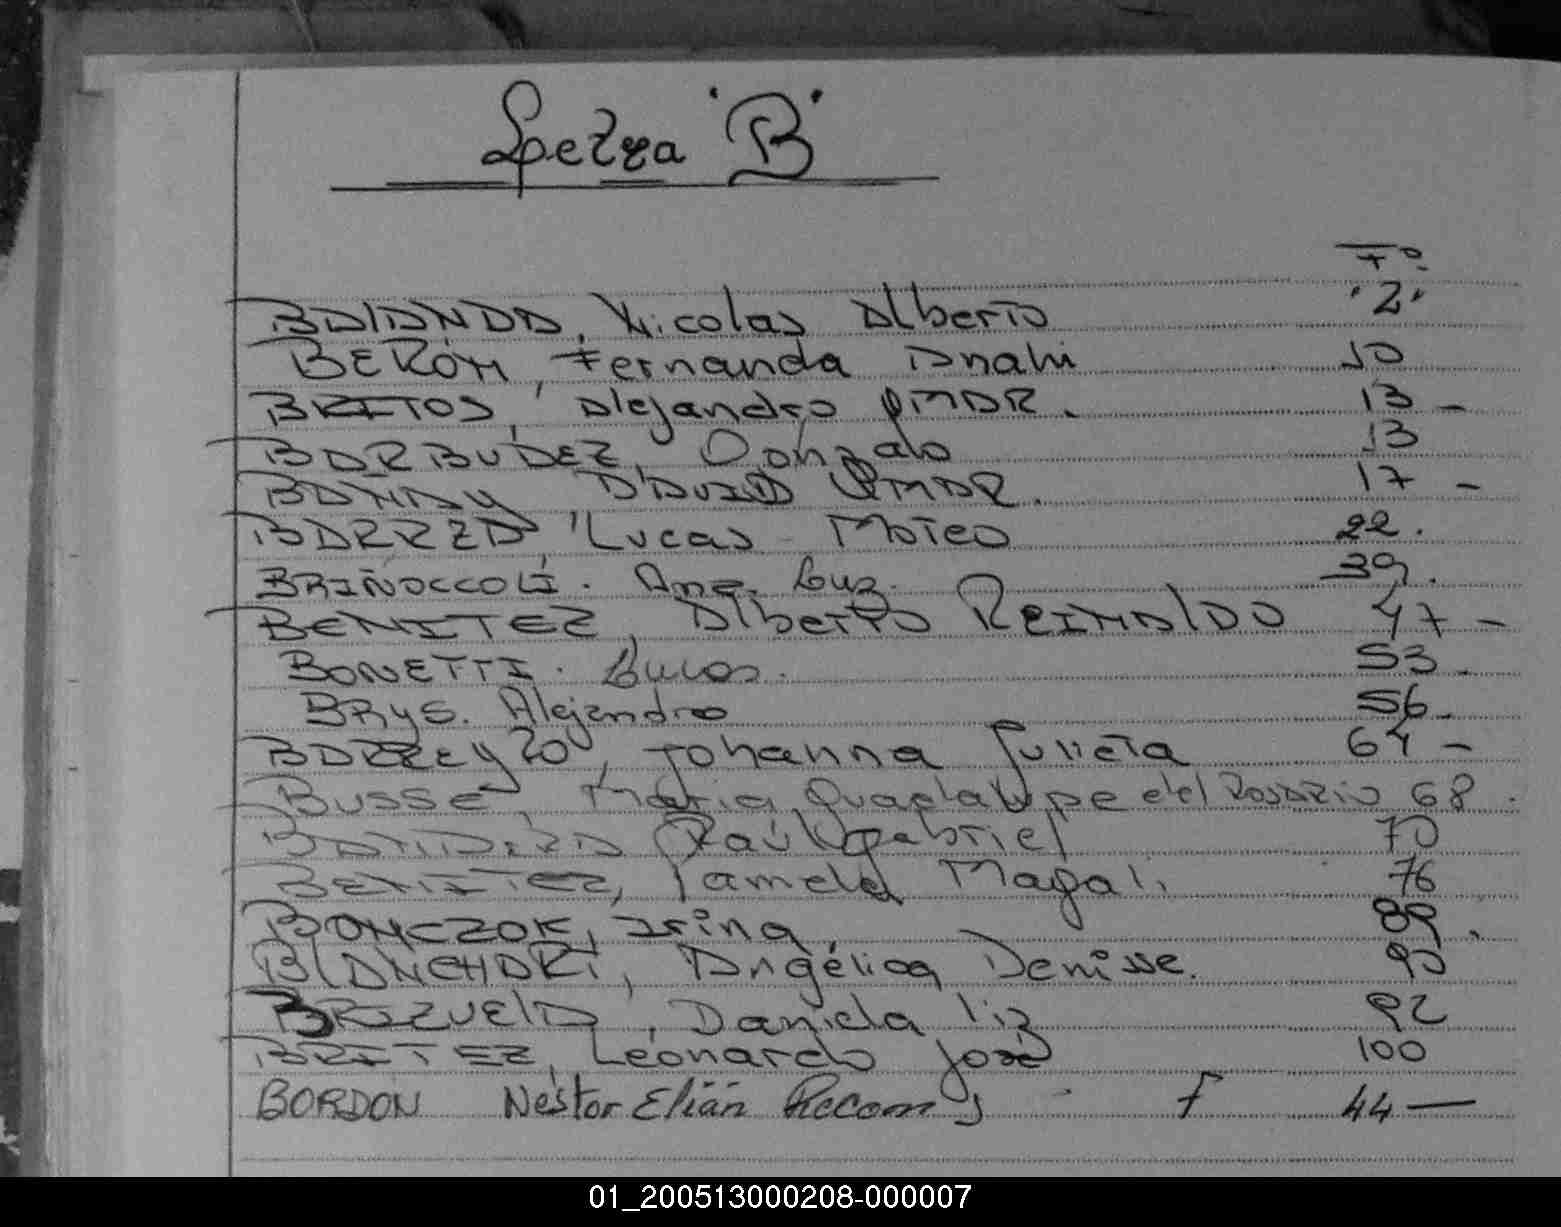 Letra "B"
Fº
BALANDA, Nicolas Alberto 2
BERÓN, Fernanda Anahi 10
BRITOS, Alejandro 13 -
BARBUDEZ, Gonzalo 13
17 -
BARRZA, Lucas Mateo 22.
BRIÑOCCOLI. Ana Luz. 39.
BENITEZ, Alberto REINALDO 47 -
BONETTI. Lucas. 53.
BRYS. Alejandro 56.
BARREYRO, Johanna Julieta 64 -
BUSSE, Maria Guadalupe del ROSARIO 68.
BANDERA Raúl Gabriel 70
BENITEZ, Pamela Magali 76
BONCZOK, Irina, 89.
BLANCHARI, Angélica Denisse. 90
BRIZUELA, Daniela liz 92
BRITEZ, Leonardo José 100
BORDON Nestor Elián f 44 —
01_200513000208-000007